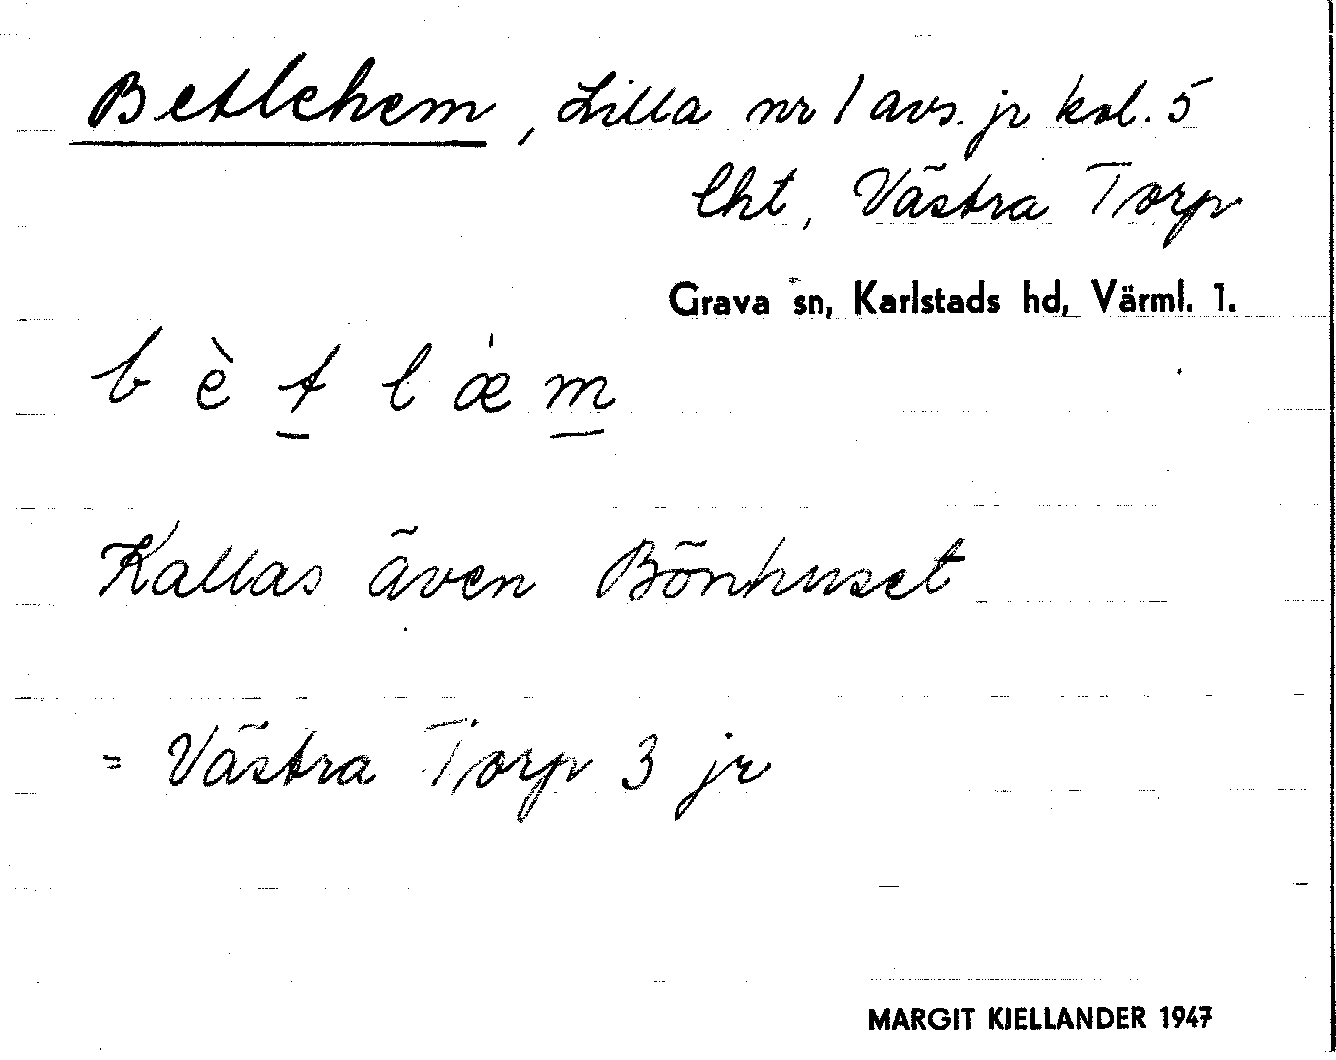 Betlehem, Lilla nr 1 avs. jr kol. 5
lht, Västra Torp
Grava sn, Karlstads hd, Värml. 1.
b è t l æ̇ m
Kallas även Bönhuset
= Västra Torp 3 jr
MARGIT KJELLANDER 1947